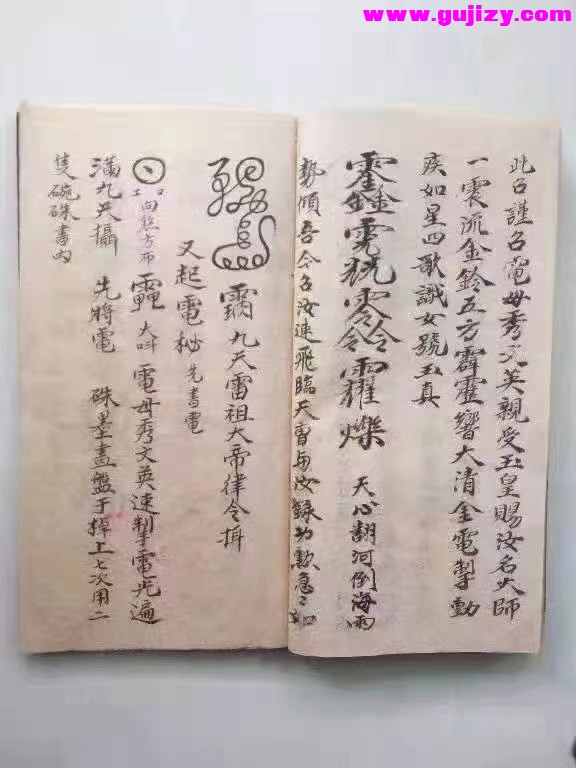 www.gujizy.com
此召謹召電母秀文英親受玉皇賜汝名大師
一震流金鈴五方霹靂響大清金電掣動
疾如星四歌識女號玉真
耀爍 天心翻河倒海雨
勢傾吾今召汝速飛臨天曹与汝錄功勲急〻如
九天雷祖大帝律令揖
又起電秘先書電
向煞方布 大呌電母秀文英速掣電光遍
滿九天攝 先將電 硃墨畫盤于掉上七次用二
隻碗硃書内